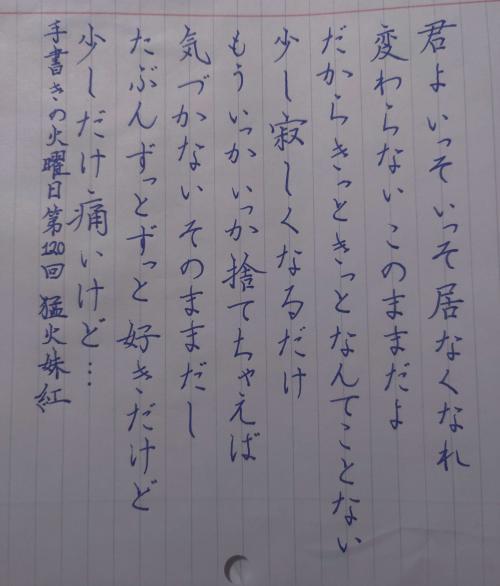 君よ いっそ いっそ 居なくなれ
変わらない このままだよ
だから きっと きっと なんてことない
少し寂しくなるだけ
もう いっか いっか 捨てちゃえば
気づかない そのままだし
たぶん ずっと ずっと 好きだけど
少しだけ 痛いけど…
手書きの火曜日第120回 猛火妹紅